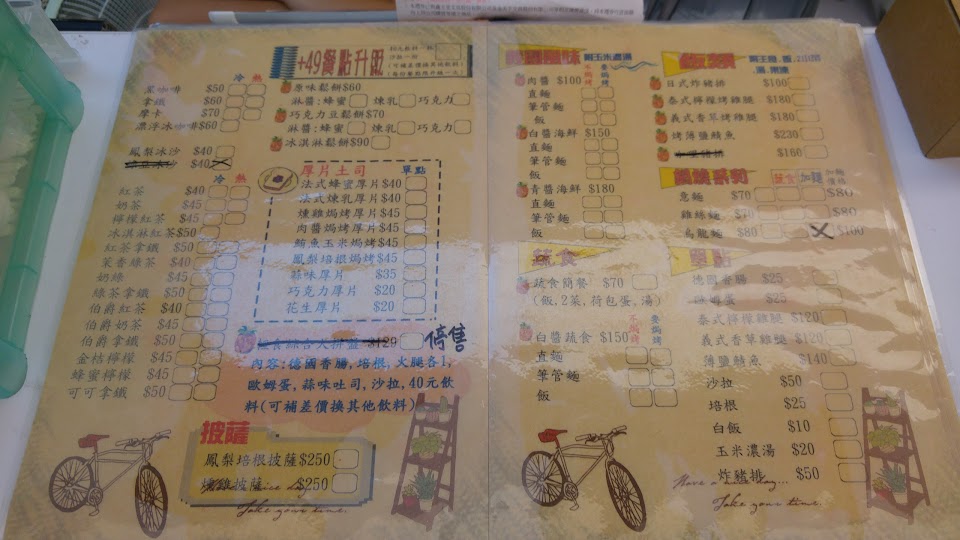 +49餐點升級
冷 熱
黑咖啡 $50
拿鐵 $60
摩卡 $70
漂浮冰咖啡$60
鳳梨冰沙 $40
$40
冷 熱
紅茶 $40
奶茶 $45
檸檬紅茶 $45
冰淇淋紅茶$50
紅茶拿鐵 $50
茉香綠茶 $40
奶綠 $45
綠茶拿鐵 $50
伯爵紅茶 $40
伯爵奶茶 $45
伯爵拿鐵 $50
金桔檸檬 $45
蜂蜜檸檬 $45
可可拿鐵 $50
原味鬆餅$60
淋醬:蜂蜜 煉乳 巧克力
巧克力豆鬆餅$70
淋醬:蜂蜜 煉乳 巧克力
冰淇淋鬆餅$90
厚片土司 單點
法式蜂蜜厚片$40
法式煉乳厚片$40
燻雞焗烤厚片$45
肉醬焗烤厚片$45
鮪魚玉米焗烤$45
鳳梨培根焗烤$45
蒜味厚片 $35
巧克力厚片 $20
花生厚片 $20
$129 停售
內容:德國香腸,培根,火腿各1,
歐姆蛋,蒜味吐司,沙拉,40元飲
料(可補差價換其他飲料)
披薩
鳳梨培根披薩$250
燻雞披薩 $250
Take your time.
附玉米濃湯
不焗烤 要焗烤
肉醬 $100
直麵
筆管麵
飯
白醬海鮮 $150
直麵
筆管麵
飯
青醬海鮮 $180
直麵
筆管麵
飯
蔬食
蔬食簡餐 $70
(飯,2菜,荷包蛋,湯)
不焗烤 要焗烤
白醬蔬食 $150
直麵
筆管麵
飯
日式炸豬排 $180
泰式檸檬烤雞腿 $180
義式香草烤雞腿 $180
烤薄鹽鯖魚 $230
$160
鍋燒系列 蔬食 加麵 加麵價格
意麵 $70 $80
雞絲麵 $70 $80
烏龍麵 $80 $100
單點
德國香腸 $25
歐姆蛋 $25
泰式檸檬雞腿 $120
義式香草雞腿 $120
薄鹽鯖魚 $140
沙拉 $50
培根 $25
白飯 $10
玉米濃湯 $20
炸豬排 $50
Have a nice day...
Take your time.